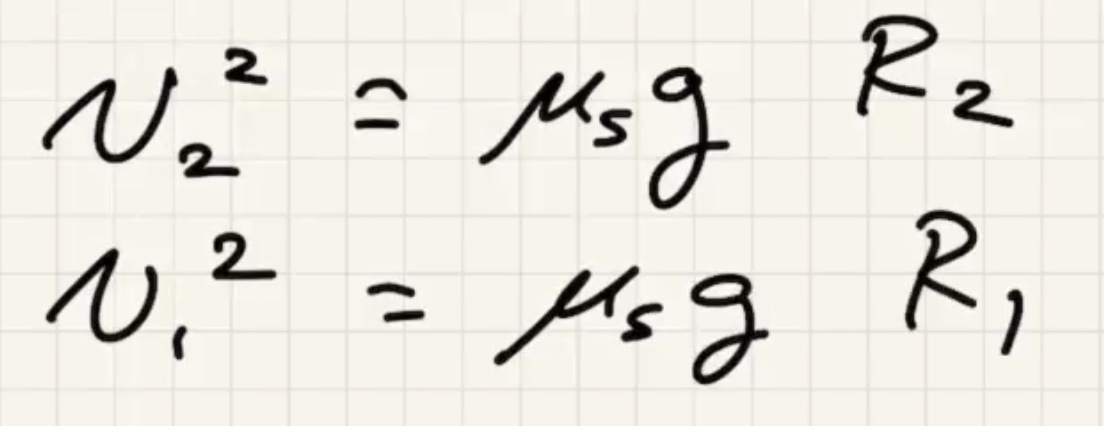 v₂² = μₛg R₂
v₁² = μₛg R₁